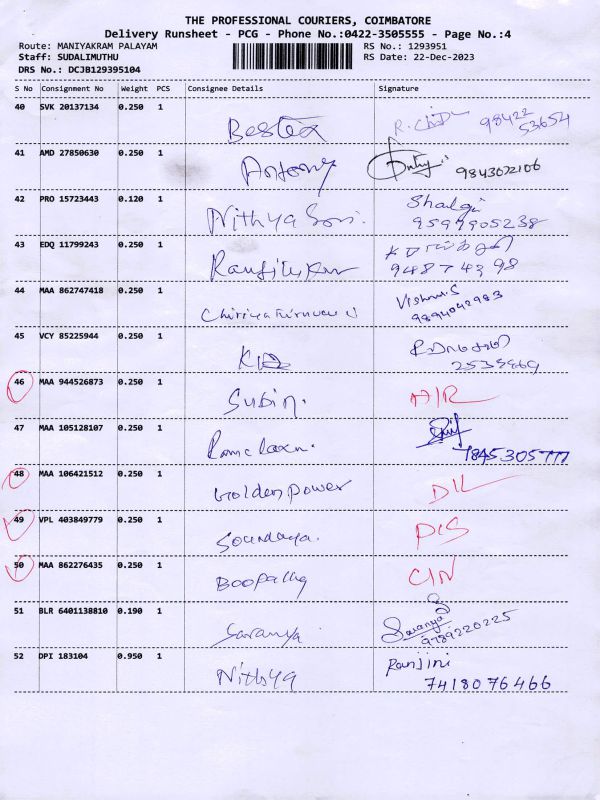 THE PROFESSIONAL COURIERS, COIMBATORE
Delivery Runsheet - PCG - Phone No.:0422-3505555 - Page No.:4
Route: MANIYAKRAM PALAYAM RS No.: 1293951
Staff: SUDALIMUTHU RS Date: 22-Dec-2023
DRS No.: DCJB129395104
S No Consignment No Weight PCS Consignee Details Signature
40 SVK 20137134 0.250 1 98422
53654
41 AMD 27850630 0.250 1 Antony 9843022106
42 PRO 15723443 0.120 1 Nithya Sori.
9597905238
43 EDQ 11799243 0.250 1
948774398
44 MAA 862747418 0.250 1 Vishnu.S
9894042983
45 VCY 85225944 0.250 1
46 MAA 944526873 0.250 1 Subin. AIR
47 MAA 105128107 0.250 1
7845305777
48 MAA 106421512 0.250 1 Golden power DIL
49 VPL 403849779 0.250 1 Soundaya. PIS
50 MAA 862276435 0.250 1 CIN
51 BLR 6401138810 0.190 1 Saranya Saranya
9789220225
52 DPI 183104 0.950 1 Nithya Ranjini
7418076466